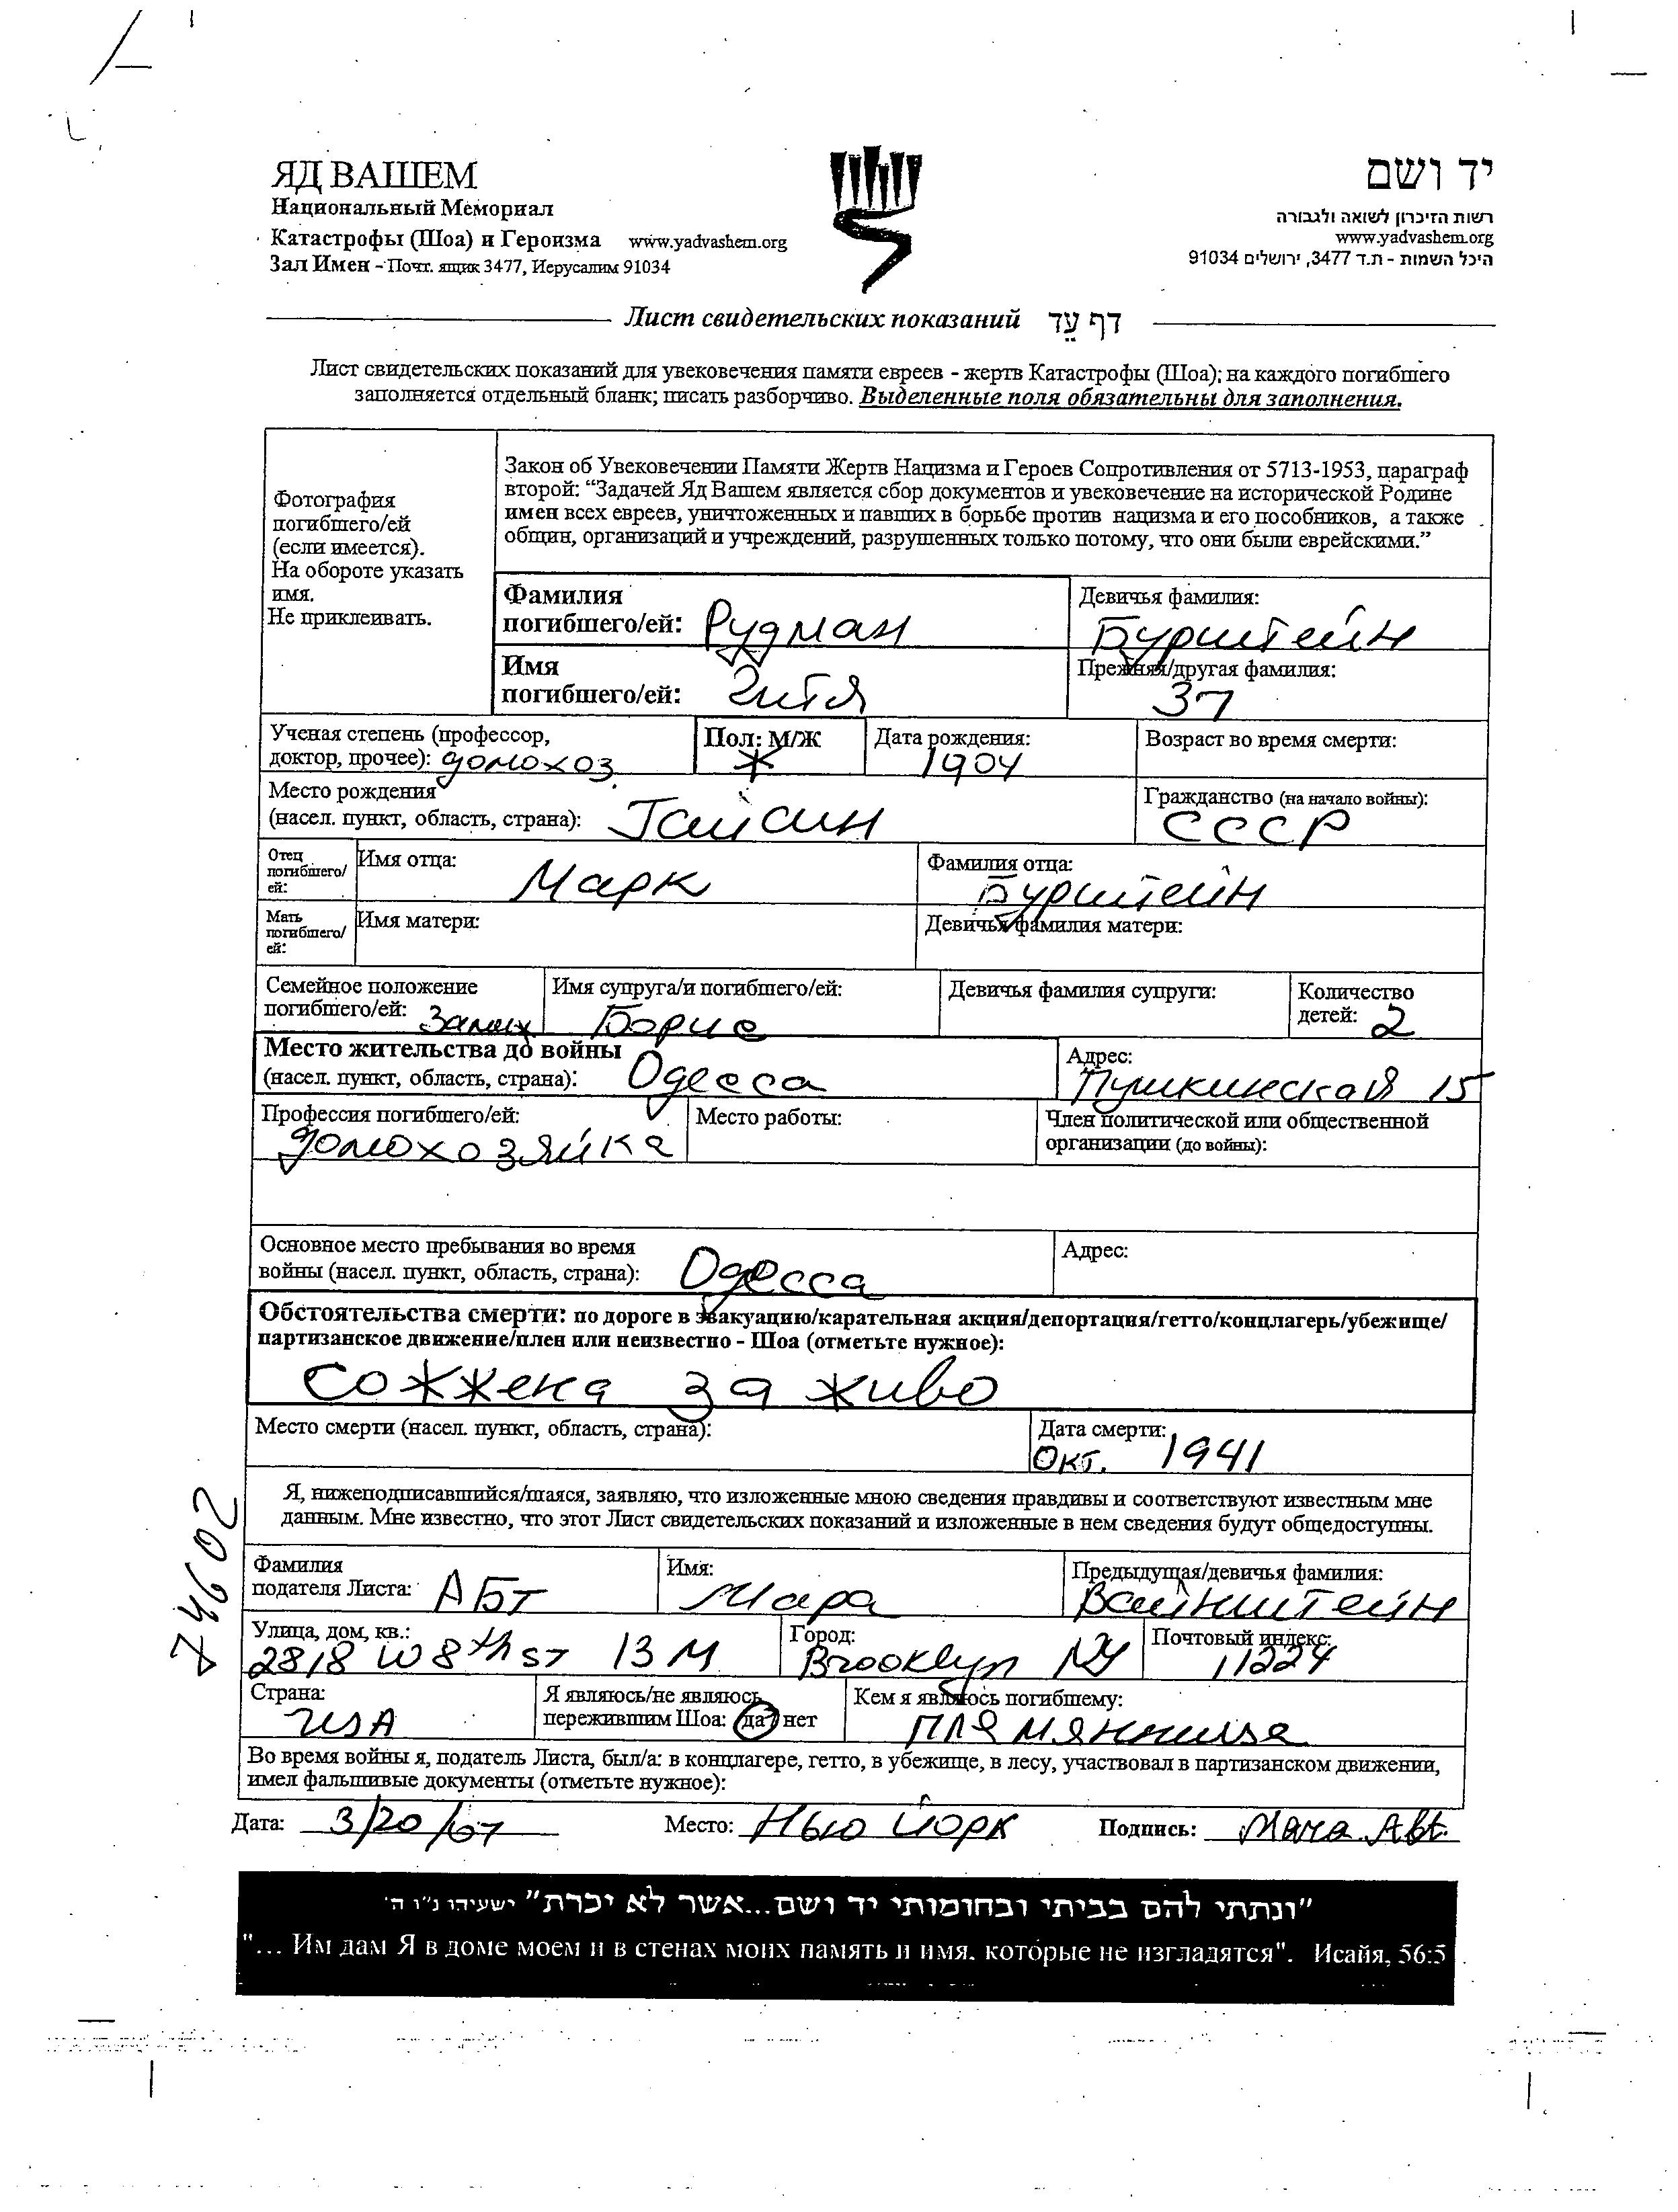 ЯД ВАШЕМ
Национальный Мемориал
Катастрофы (Шоа) и Героизма www.yadvashem.org
Зал Имен - Почт. ящик 3477, Иерусалим 91034
יד ושם
רשות הזיכרון לשואה ולגבורה
www.yadvashem.org
היכל השמות - ת.ד 3477, ירושלים 91034
Лист свидетельских показаний דף עֵד
Лист свидетельских показаний для увековечения памяти евреев - жертв Катастрофы (Шоа); на каждого погибшего
заполняется отдельный бланк; писать разборчиво. Выделенные поля обязательны для заполнения.
Фотография
погибшего/ей
(если имеется).
На обороте указать
имя.
Не приклеивать.
Закон об Увековечении Памяти Жертв Нацизма и Героев Сопротивления от 5713-1953, параграф
второй: “Задачей Яд Вашем является сбор документов и увековечение на исторической Родине
имен всех евреев, уничтоженных и павших в борьбе против нацизма и его пособников, а также
общин, организаций и учреждений, разрушенных только потому, что они были еврейскими.”
Фамилия
погибшего/ей: Рудман
Девичья фамилия:
Бурштейн
Имя
погибшего/ей: Гитя
Прежняя/другая фамилия:
37
Ученая степень (профессор,
доктор, прочее): домохоз.
Пол: М/Ж
Ж
Дата рождения:
1904
Возраст во время смерти:
Место рождения
(насел. пункт, область, страна): Гайсин
Гражданство (на начало войны):
СССР
Отец
погибшего/
ей:
Имя отца:
Марк
Фамилия отца:
Бурштейн
Мать
погибшего/
ей:
Имя матери:
Девичья фамилия матери:
Семейное положение
погибшего/ей: Замуж
Имя супруга/и погибшего/ей:
Борис
Девичья фамилия супруги:
Количество
детей: 2
Место жительства до войны
(насел. пункт, область, страна): Одесса
Адрес:
Пушкинская 15
Профессия погибшего/ей:
домохозяйка
Место работы:
Член политической или общественной
организации (до войны):
Основное место пребывания во время
войны (насел. пункт, область, страна): Одесса
Адрес:
Обстоятельства смерти: по дороге в эвакуацию/карательная акция/депортация/гетто/концлагерь/убежище/
партизанское движение/плен или неизвестно - Шоа (отметьте нужное):
Сожжена за живо
Место смерти (насел. пункт, область, страна):
Дата смерти:
Окт. 1941
Я, нижеподписавшийся/шаяся, заявляю, что изложенные мною сведения правдивы и соответствуют известным мне
данным. Мне известно, что этот Лист свидетельских показаний и изложенные в нем сведения будут общедоступны.
74602
Фамилия
подателя Листа: АБТ
Имя:
Мара
Предыдущая/девичья фамилия:
Вайнштейн
Улица, дом, кв.:
2818 W 8th ST 13 M
Город:
Brooklyn NY
Почтовый индекс:
11224
Страна:
USA
Я являюсь/не являюсь
пережившим Шоа: да/нет
Кем я являюсь погибшему:
племянница
Во время войны я, податель Листа, был/а: в концлагере, гетто, в убежище, в лесу, участвовал в партизанском движении,
имел фальшивые документы (отметьте нужное):
Дата: 3/20/07 Место: Нью Йорк Подпись: Mara Abt.
"ונתתי להם בביתי ובחומותי יד ושם...אשר לא יכרת" ישעיהו נ"ו ה'
"... Им дам Я в доме моем и в стенах моих память и имя, которые не изгладятся". Исайя, 56:5